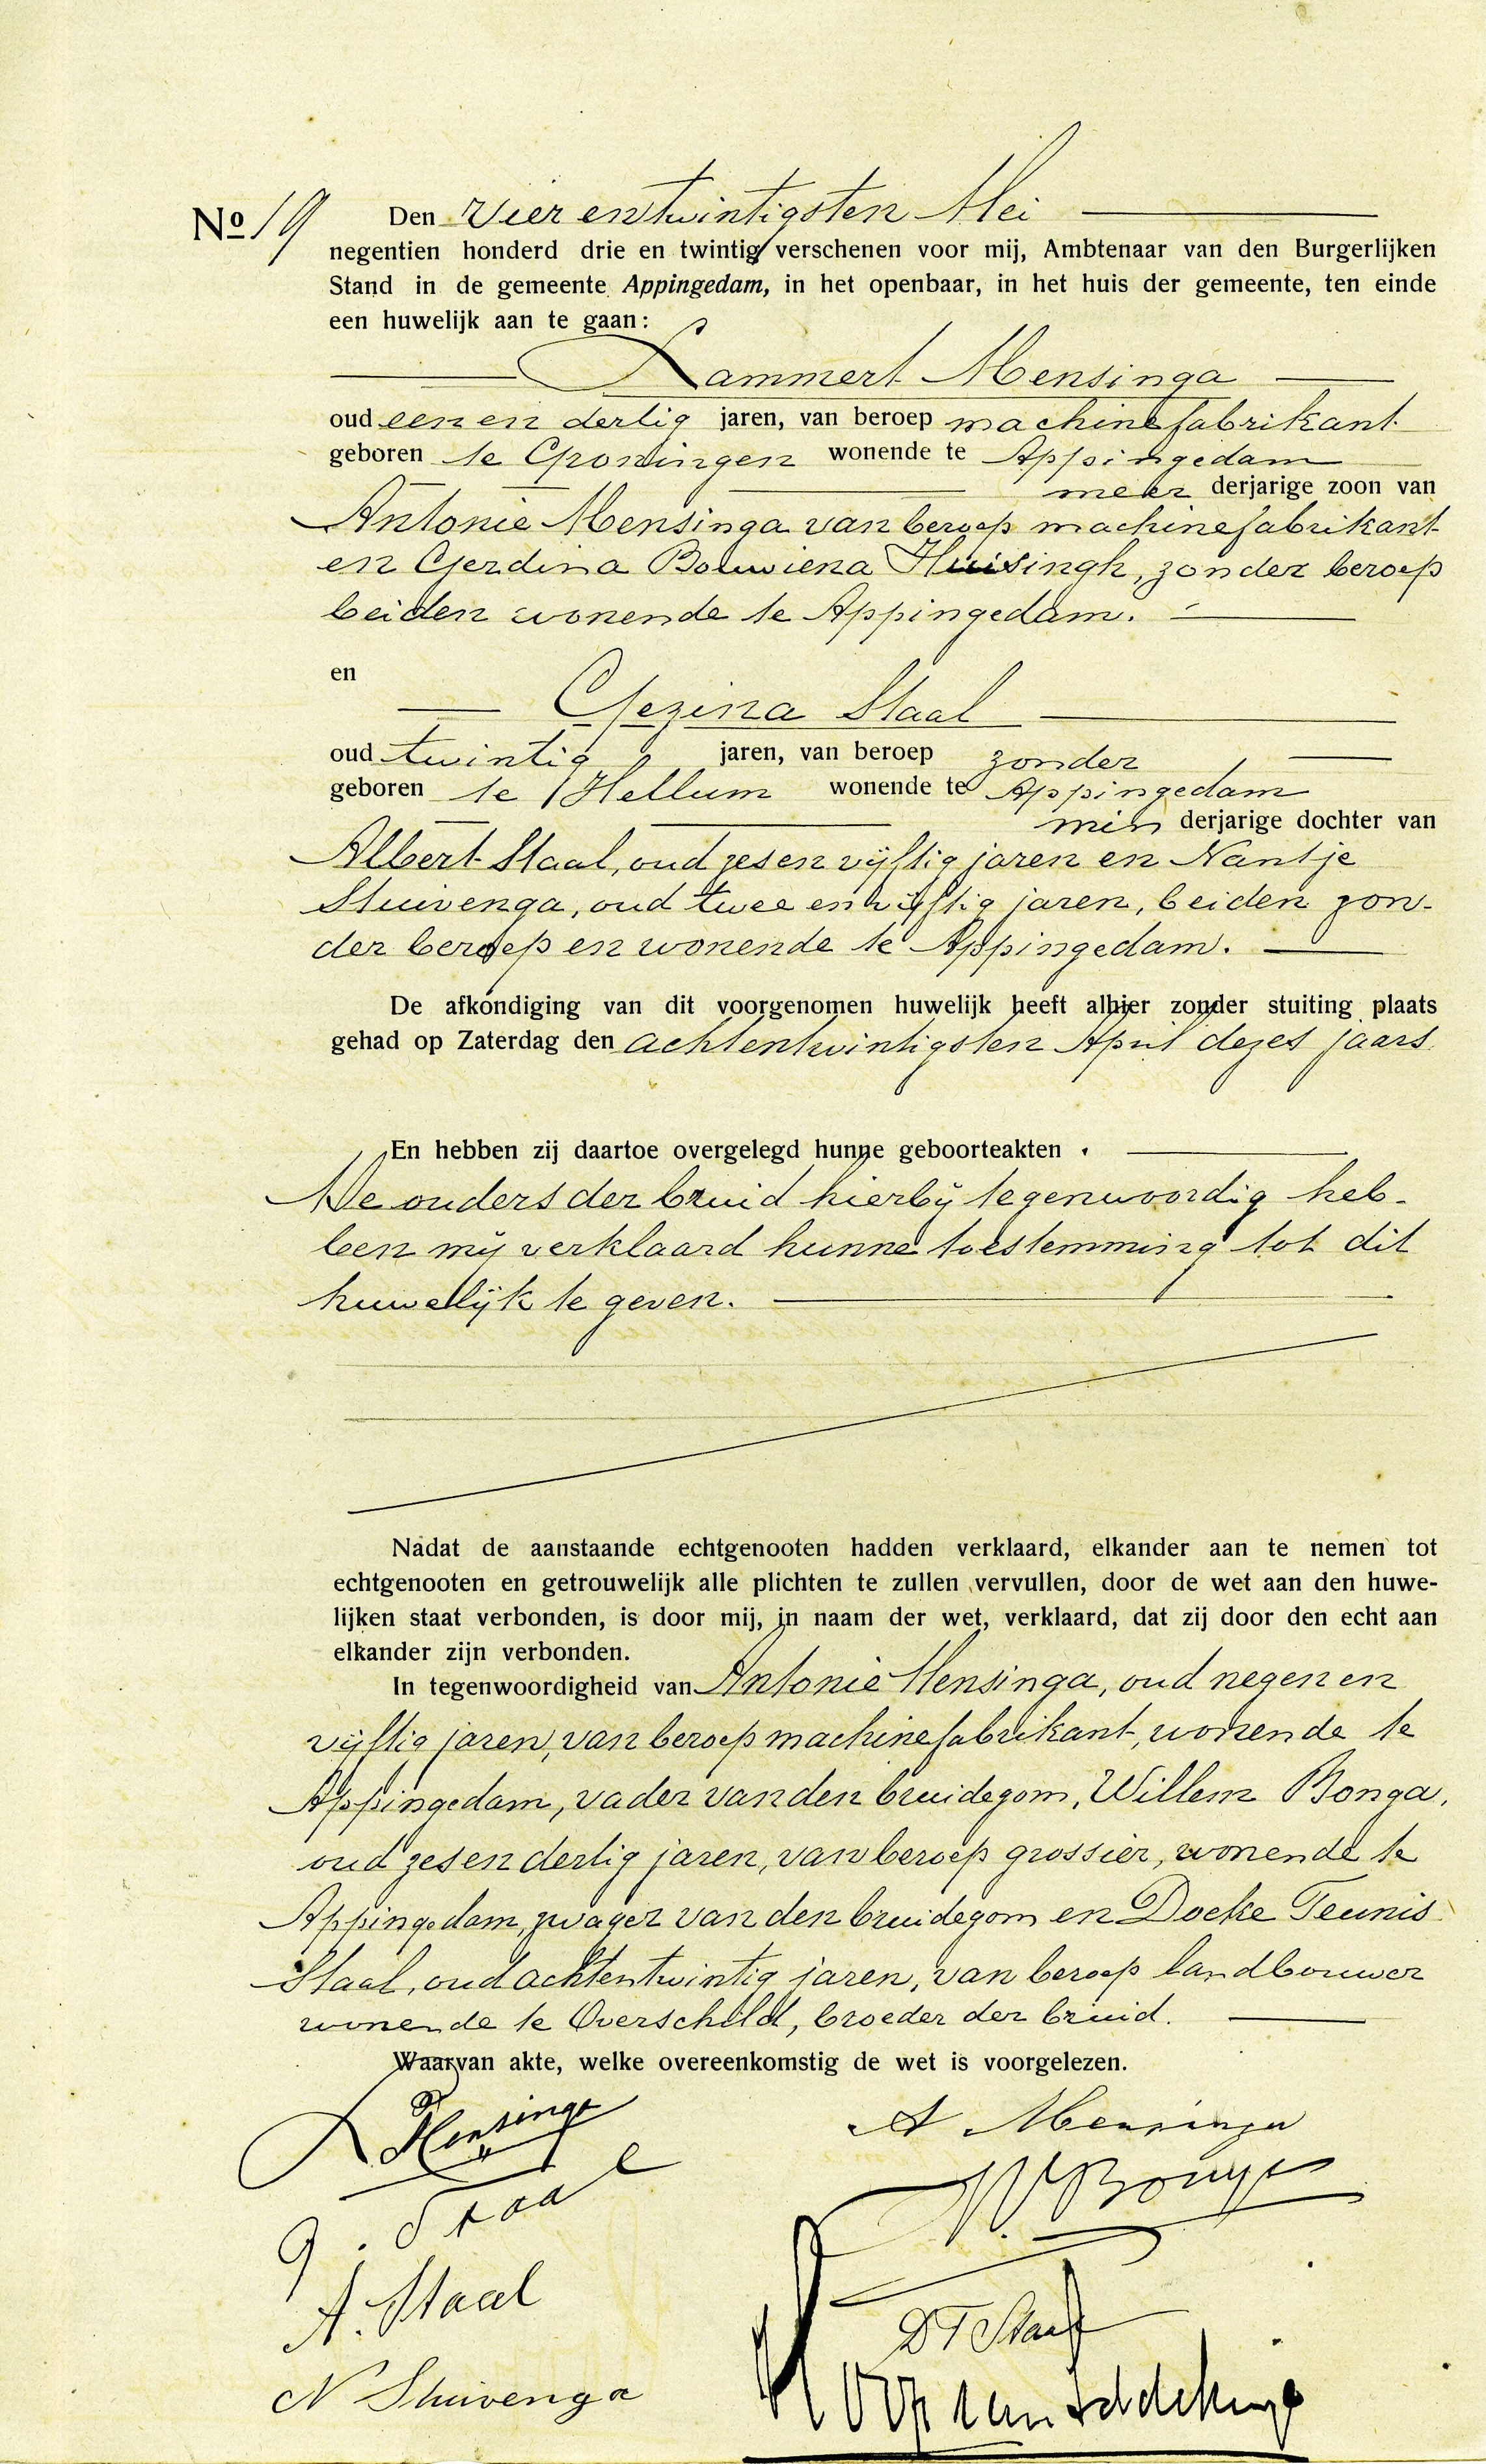 Nº 19 Den vier en twintigsten Mei
negentien honderd drie en twintig verschenen voor mij, Ambtenaar van den Burgerlijken
Stand in de gemeente Appingedam, in het openbaar, in het huis der gemeente, ten einde
een huwelijk aan te gaan:
Lammert Mensinga
oud een en dertig jaren, van beroep machinefabrikant
geboren te Groningen wonende te Appingedam
meer derjarige zoon van
Antonie Mensinga van beroep machinefabrikant
en Gerdina Bouwiena Huisingh, zonder beroep
beiden wonende te Appingedam.
en
Gezina Staal
oud twintig jaren, van beroep zonder
geboren te Hellum wonende te Appingedam
min derjarige dochter van
Albert Staal, oud zes en vijftig jaren en Nantje
Stuivenga, oud twee en vijftig jaren, beiden zon-
der beroep en wonende te Appingedam.
De afkondiging van dit voorgenomen huwelijk heeft alhier zonder stuiting plaats
gehad op Zaterdag den achtentwintigsten April dezes jaars
En hebben zij daartoe overgelegd hunne geboorteakten.
De ouders der bruid hierbij tegenwoordig heb-
ben mij verklaard hunne toestemming tot dit
huwelijk te geven.
Nadat de aanstaande echtgenooten hadden verklaard, elkander aan te nemen tot
echtgenooten en getrouwelijk alle plichten te zullen vervullen, door de wet aan den huwe-
lijken staat verbonden, is door mij, in naam der wet, verklaard, dat zij door den echt aan
elkander zijn verbonden.
In tegenwoordigheid van Antonie Mensinga, oud negen en
vijftig jaren, van beroep machinefabrikant, wonende te
Appingedam, vader van den bruidegom, Willem Bonga,
oud zes en dertig jaren, van beroep grossier, wonende te
Appingedam, zwager van den bruidegom en Doeke Teunis
Staal, oud achtentwintig jaren, van beroep landbouwer
wonende te Overschild, broeder der bruid.
Waarvan akte, welke overeenkomstig de wet is voorgelezen.
L Mensinga
A Mensinga
G. Staal
W. Bonga
A. Staal
DT Staal
N Stuivenga